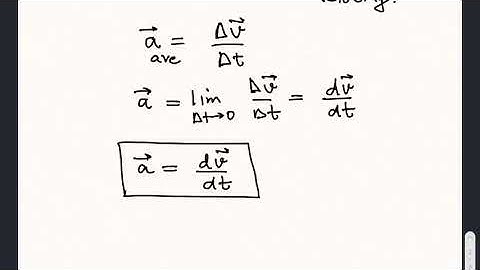 a⃗ ave = Δv⃗/Δt
a⃗ = lim Δt→0 Δv⃗/Δt = dv⃗/dt
a⃗ = dv⃗/dt